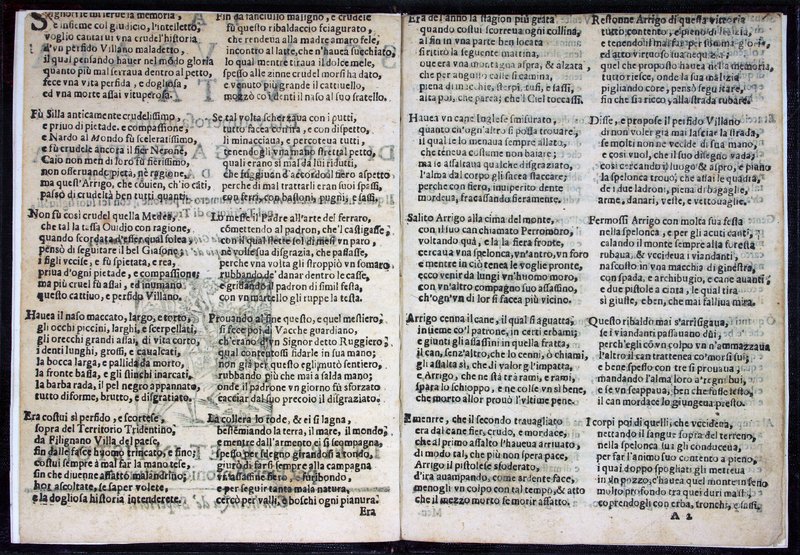 Signori se mi serue la memoria,
e insieme col giudicio, l'intelletto,
voglio cantarui vna crudel'historia
d'vn perfido Villano maladetto,
il qual pensando hauer nel modo gloria
quanto più mal serraua dentro al petto,
fece vna vita perfida, e dogliosa,
ed vna morte assai vituperosa.
Fù Silla anticamente crudelissimo,
e priuo di pietade, e compassione,
e Nardo al Mondo fù sceleratissimo,
e fù crudele ancora il fier Nerone,
Caio non men di loro fù fierissimo,
non osseruando pietà, nè ragione,
ma quest'Arrigo, che conien, ch'io cãti,
passò di crudeltà ben tutti quanti.
Non sù così crudel quella Medea,
che tal la tessa Ouidio con ragione,
quando scordata d'esser qual solea,
pensò di seguitare il bel Giasone,
i figli vccise, e fù spietata, e rea,
priua d'ogni pietade, e compassione,
ma più cruel fù assai, ed inumano
questo cattiuo, e perfido Villano.
Hauea il naso maccato, largo, e torto,
gli occhi piccini, larghi, e scerpellati,
gli orecchi grandi assai, di vita corto,
i denti lunghi, grossi, e caualcati,
la bocca larga, e pallida da morto,
la fronte bassa, e gli stinchi inarcati,
la barba rada, il pel negro appannato,
tutto diforme, brutto, e disgratiato.
Era costui sì perfido, e scortese,
sopra del Territorio Tridentino,
da Filignano Villa del paese,
fin dalle fasce huomo trincato, e fino;
costui sempre à mal far la mano tese,
fin che diuenne assatto malandrino;
hor ascoltate, se saper volete,
e la dogliosa historia intenderete.
Fin da fanciullo maligno, e crudele
fù questo ribaldaccio sciagurato,
che crudeua alla madre amaro fele,
incontro al latte, che n'hauea succhiato,
lo qual mentre tiraua il dolce mele,
spesso alle zinne crudel morsi ha dato,
e venuto più grande il cattiuello,
mozzò co i denti il naso al suo fratello.
Se tal volta scherzaua con i putti,
tutto facea contra, e con dispetto,
li minacciaua, e percoteua tutti,
tenendogli vna mano stretta al petto,
quali erano sì mal da lui ridutti,
che fuggiuan d'accordo il fiero aspetto
perche di mal trattarli eran suoi spassi,
con ferri, con bastoni, pugni, e sassi.
Lo messe il Padre all'arte del ferraro,
cõmettendo al padron, che'l castigasse,
con il qual stette sol di mesi vn paro,
hà volse sua disgrazia, che passasse,
perche vna volta gli stroppiò vn somaro
rubbando de' danar dentro le casse,
e gridando il padron di simil festa,
con vn martello gli ruppe la testa.
Prouando al fine questo, e quel mestiero,
si fece poi di Vacche guardiano,
ch'erano d'vn Signor detto Ruggiero,
qual contentossi fidarle in sua mano;
non già per questo egli mutò sentiero,
rubbando più che mai a salda mano;
onde il padrone vn giorno fù sforzato
cacciar dal suo precoio il disgraziato.
La collera lo rode, & ei si lagna,
bestemiando la terra, il mare, il mondo,
e mentre dall'armento ei si scompagna,
spesso per sdegno girandosi a tondo,
giurò di farsi sempre alla campagna
vn assassine fiero, e furibondo,
e per seguir tanta mala natura,
cercò per valli, e boschi ogni pianura.
Era
Era dell'anno la stagion più grata
quando costui scorreua ogni collina,
al fin in vna parte ben locata
si ritirò la seguente mattina,
oue era vna montagna aspra, & alzata,
che per angusto calle si camina,
piena di machie, sterpi, tufi, e sassi,
alta poi, che parea; che'l Ciel toccassi.
Hauea vn cane Inglese smisurato,
quanto ch'ogn'altro si possa trouare,
il qual e lo menaua sempre allato,
che teneua costume non baiare;
ma se assaltaua qualche disgraziato,
l'alma dal corpo gli facea slaccare;
perche con fiero, insuperito dente
mordeua, fracassando fieramente.
Salito Arrigo alla cima del monte,
con il suo can chiamato Perromoro,
voltando quà, e là la fiera fronte,
cercaua vna spelonca, vn'antro, vn foro
e mentre in ciò tenea le voglie pronte,
ecco venir da lungi vn'huomo moro,
con vn'altro compagno suo assassino,
ch'ogn'vn di lor si facea più vicino.
Arrigo cenna il cane, il qual s'aguatta,
insieme co'l patrone, in certi erbami;
e giunti gli assassini in quella fratta,
il can, senz'altro, che lo cenni, ò chiami,
gli assalta sì, che di valor gl'impatta,
e Arrigo, che ne stà trà rami, e rami,
spara lo schioppo, e ne colse vn sì bene,
che morto allor prouò l'vltime pene.
Ementre, che il secondo trauagliato
era dal cane fier, crudo, e mordace,
che al primo assalto l'haueua arriuato,
di modo tal, che più non spera pace,
Arrigo il pistolese sfoderato,
d'ira auampando, come ardente face,
menogli vn colpo con tal tempo, & atto
che il mezzo morto se morir assatto.
Restonne Arrigo di questa vittoria
tutto contento, e pieno di letizia,
e tenendo il mal far per somma gloria,
ed atto virtuoso sua nequizia;
quel che proposto hauea nella memoria,
tutto riesce, onde la sua malizia
pigliando core, pensò seguitare,
fin che sia ricco, alla strada rubare.
Disse, e propose il perfido Villano
di non voler già mai lasciar la strada,
se molti non ne vccide di sua mano,
e così vuol, che il suo disegno vada;
così cercando il luogo & aspro, e piano
la spelonca trouò, che assai le quadra,
de i due ladroni, piena di bagaglie,
arme, danari, veste, e vettouaglie.
Fermossi Arrigo con molta sua festa
nella spelonca, e per gli acuti canti,
calando il monte sempre alla foresta
rubaua, & vccideua i viandanti,
nascosto in vna macchia di ginestra,
con spada, e archibugio, e cane auanti,
e due pistole a cinta, le qual tira
sì giuste, e ben, che mai fallius mira.
Questo ribaldo mai s'arrisigaua,
se i viandanti passauano dui,
perch'egli cõ vn colpo vn n'ammazzaua
l'altro il can trattenea co' morsi sui;
e bene spesso con tre si prouaua,
mandando l'alma loro a'regni bui,
e se vn scappaua, ben che fusse lesto,
il can mordace lo giungeua presto.
I corpi poi di quelli, che vccideua,
nettando il sangue sopra del terreno,
nella spelonca sua gli conduceua,
per far l'animo suo contento a pieno,
i quai doppo spogliati gli metteua
in vn pozzo, c'hauea quel monte in seno
molto profondo tra quei duri massi,
coprendogli con erba, tronchi, e sassi.
A 2